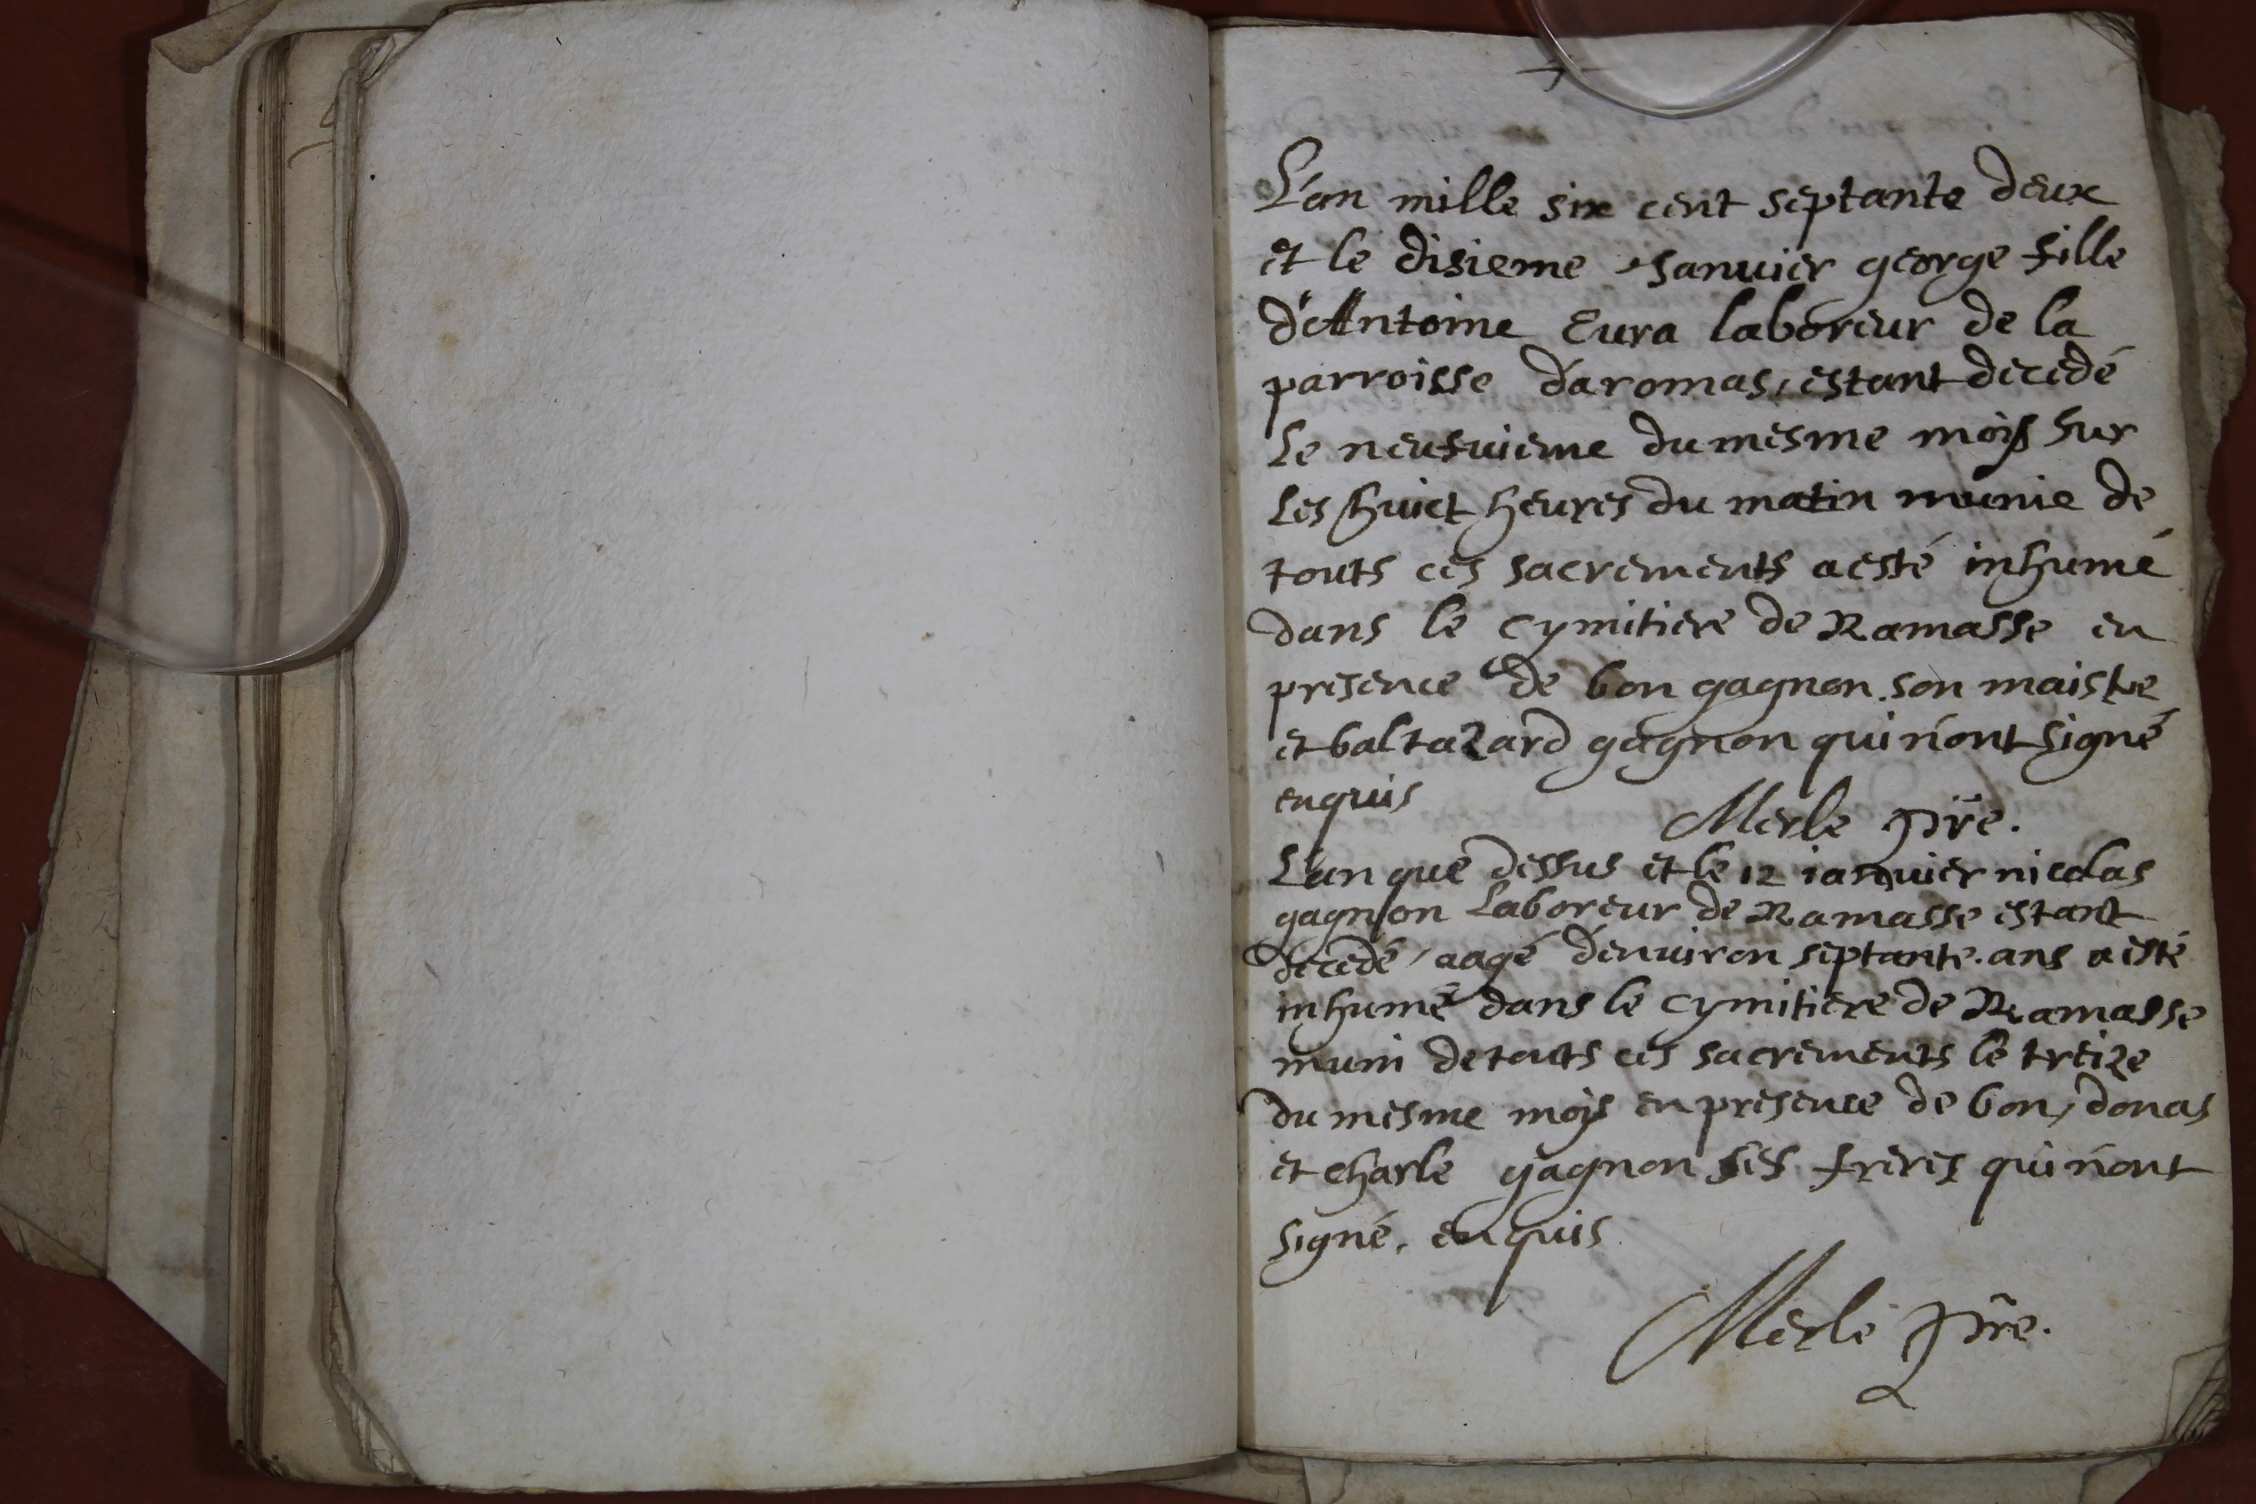 L'an mille six cent septante deux
et le disieme Januier george fille
d'Antoine Eura laboreur de la
parroisse d'aromas, estant decedé
Le neufuieme du mesme mois sur
Les huict heures du matin munie de
touts ces sacrements a esté inhumé
dans le cymitiere de Ramasse en
presence de bon gagnon son maistre
et baltazard gagnon qui n'ont signé
enquis
Merle pr̃e.
L'an que dessus et le 12 ianuier nicolas
gagnon Laboreur de Ramasse estant
decedé, aagé d'enuiron septante. ans a esté
inhumé dans le cymitiere de Ramasse
muni de touts ces sacrements le treize
du mesme mois en presence de bon, donas
et Charle gagnon ses freres qui n'ont
signé. enquis
Merle pr̃e.